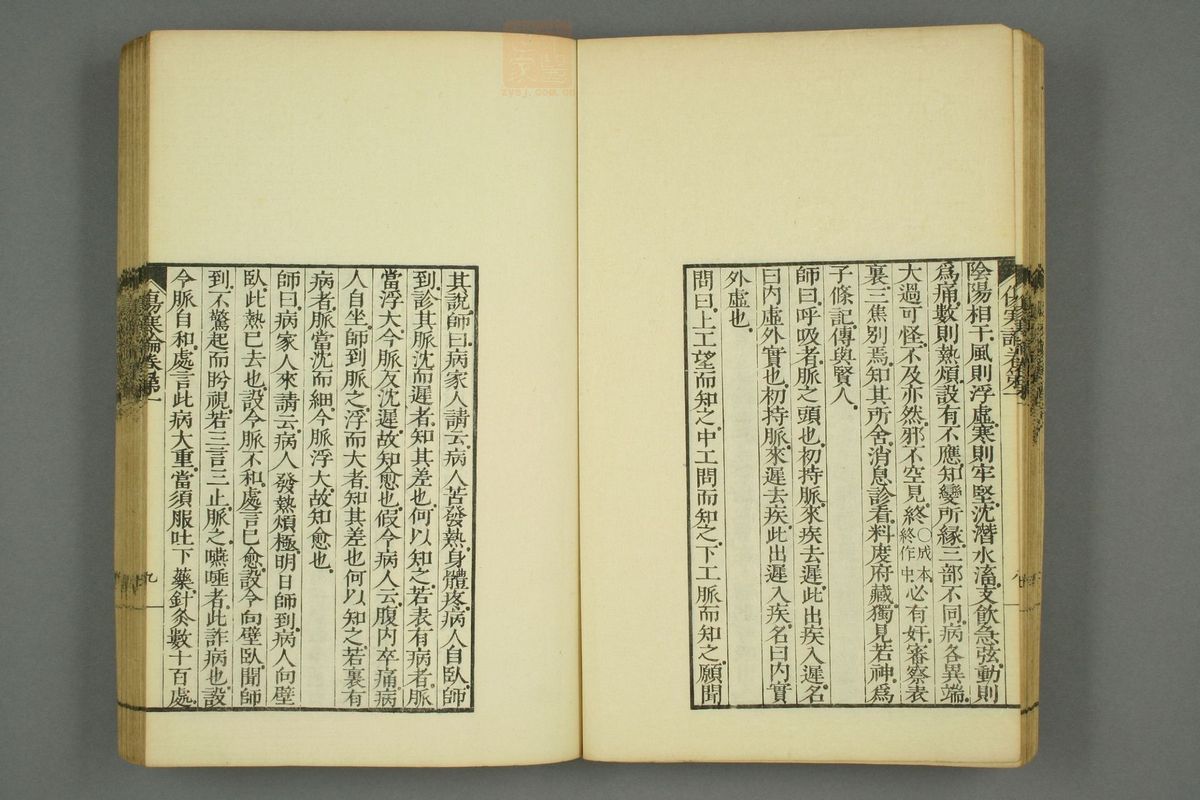 陰陽相干。風則浮虛。寒則牢堅。沈潛水畜。支飲急弦。動則
爲痛。數則熱煩。設有不應。知變所緣。三部不同。病各異端。
大過可怪。不及亦然。邪不空見。終〇成本終作中必有奸。審察表
裏。三焦別焉。知其所舍。消息診看。料度府藏。獨見若神。爲
子條記。傳與賢人。
師曰。呼吸者。脈之頭也。初持脈。來疾去遲。此出疾入遲。名
曰內虛外實也。初持脈。來遲去疾。此出遲入疾。名曰內實
外虛也。
問曰。上工望而知之。中工問而知之。下工脈而知之。願聞
其說。師曰。病家人請云。病人苦發熱。身體疼。病人自臥。師
到。診其脈。沈而遲者。知其差也。何以知之。若表有病者。脈
當浮大。今脈反沈遲。故知愈也。假令病人云。腹內卒痛。病
人自坐。師到。脈之。浮而大者。知其差也。何以知之。若裏有
病者。脈當沈而細。今脈浮大。故知愈也。
師曰。病家人來請云。病人發熱煩極。明日師到。病人向壁
臥。此熱已去也。設令脈不和。處言已愈。設令向壁臥。聞師
到。不驚起而盻視。若三言三止。脈之。嚥唾者。此詐病也。設
令脈自和。處言此病大重。當須服吐下藥。針灸數十百處。
傷寒論卷第一
九
zysj.com.cn